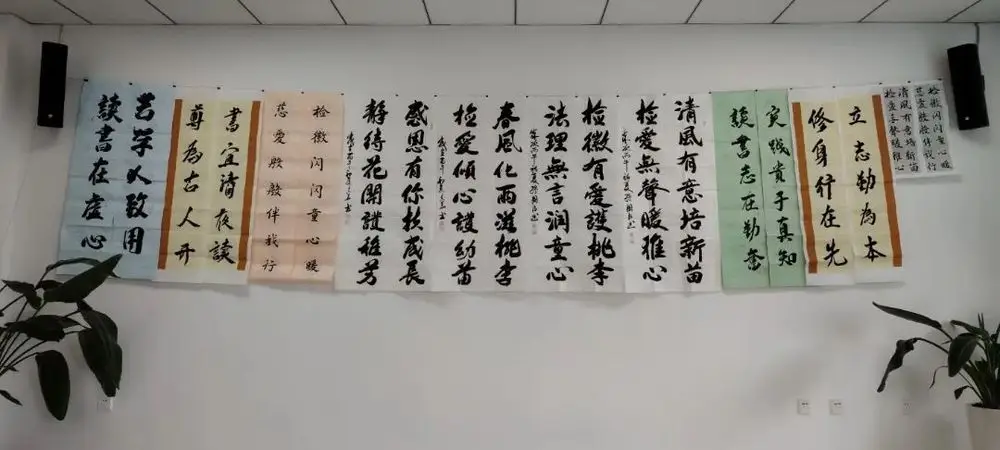 检徽闪闪童心暖
慈爱殷殷伴我行
清風有意培新苗
立志勤為本
修身行在先
实践貴于真知
讀書志在勤奮
清風有意培新苗
检愛無聲暖稚心
检徽有愛護桃李
法理無言润童心
春風化雨滋桃李
检愛傾心護幼苗
感恩有你扶成長
靜待花開護稚芳
检徽闪闪童心暖
慈爱殷殷伴我行
書宜清夜讀
尊為古人开
苦学以致用
讀書在虛心